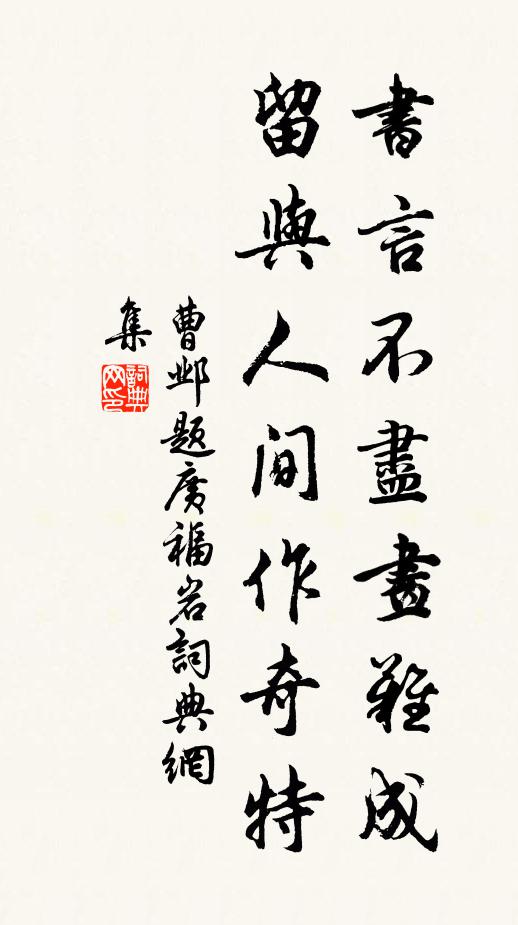 書言不盡畫難成
留與人間作奇特
曹鄴題廣福岩詞典網
集
詞典
网印